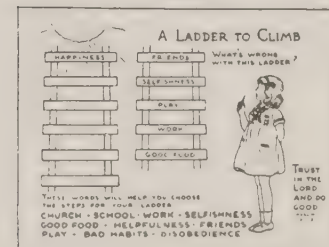 A LADDER TO CLIMB
HAPPINESS
FRIENDS
SELFISHNESS
PLAY
WORK
GOOD FOOD
WHAT'S WRONG
WITH THIS LADDER?
TRUST
IN THE
LORD
AND DO
GOOD
THESE WORDS WILL HELP YOU CHOOSE
THE STEPS FOR YOUR LADDER
CHURCH - SCHOOL - WORK - SELFISHNESS
GOOD FOOD - HELPFULNESS - FRIENDS
PLAY - BAD HABITS - DISOBEDIENCE